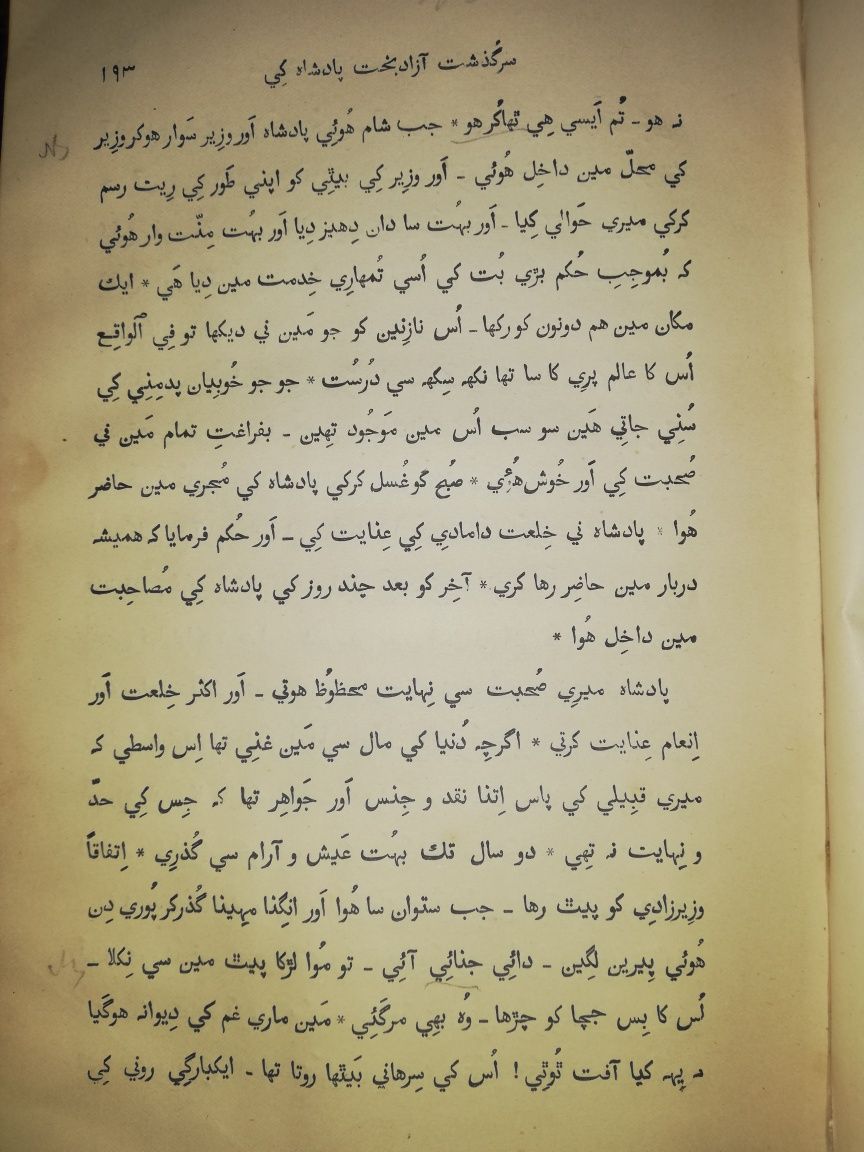 سرگذشت آزاد بخت پادشاه کي ۱۹۳
نہ هو ـ تُم اَيسي هِي ٹهاکُر هو * جب شام هُوئِي پادشاه اَور وزِير سَوار هوکر وزِير
کي محلّ مين داخِل هُوئي ـ اَور وزِير کِي بيٹِي کو اپني طَور کِي رِيت رسم
کرکي ميري حَوالي کِيا ـ اَور بہُت سا دان دِهيز دِيا اَور بہُت مِنّت وار هُوئي
کہ بُموجِبِ حُکم بڑي بُت کي اُسي تُمهارِي خِدمت مين دِيا هَي * ايک
مکان مين هم دونون کو رکها ـ اُس نازنِين کو جو مَين ني ديکها تو فِي ٱلواقِع
اُس کا عالم پرِي کا سا تها نکهہ سِکهہ سي دُرُست * جو جو خُوبِيان پدمِنِي کِي
سُنِي جاتِي هَين سو سب اُس مين مَوجُود تهِين ـ بفراغتِ تمام مَين ني
صُحبت کِي اَور خُوش هُئِي * صُبح کو غُسل کرکي پادشاه کي مُجري مين حاضر
هُوا * پادشاه ني خِلعت دامادِي کِي عِنايت کِي ـ اَور حُکم فرمايا کہ هميشہ
دربار مين حاضِر رها کري * آخِر کو بعد چند روز کي پادشاه کِي مُصاحِبت
مين داخِل هُوا *
پادشاه ميرِي صُحبت سي نِهايت محظوُظ هوتي ـ اَور اکثر خِلعت اَور
اِنعام عِنايت کرتي * اگرچِہ دُنيا کي مال سي مَين غنِي تها اِس واسطي کہ
ميري قبِيلي کي پاس اِتنا نقد و جِنس اَور جَواهِر تها کہ جِس کِي حدّ
و نِهايت نہ تهِي * دو سال تک بہُت عَيش و آرام سي گُذرِي * اِتفاقاً
وزِيرزادِي کو پيٹ رها ـ جب ستوان سا هُوا اَور انگنا مہِينا گُذرکر پُوري دِن
هُوئي پِيرين لگِين ـ دائِي جنائِي آئِي ـ تو مُوا لڑکا پيٹ مين سي نِکلا ـ
اُس کا بِس جچا کو چڑها ـ وُه بهِي مرگئِي * مَين ماري غم کي دِيوانہ هوگيا
کہ يِہہ کيا آفت ٹُوٹِي ! اُس کي سِرهاني بَيٹها روتا تها ـ ايکبارگِي روني کِي